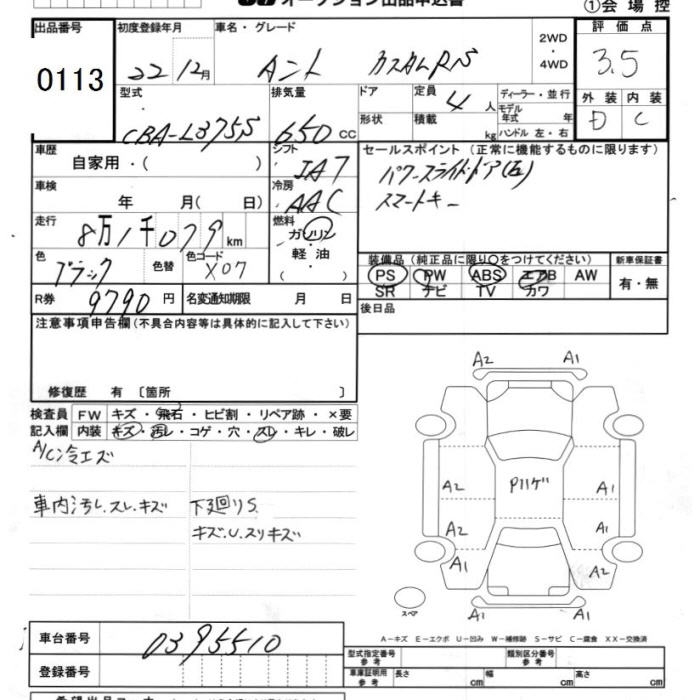 オークション出品申込書 ①会場控
出品番号 初度登録年月 車名・グレード 2WD・4WD 評価点
0113 22/12月 タント カスタムRS 3.5
型式 排気量 ドア 定員 4人 ディーラー・並行 外装 内装
モデル年式 年
CBA-L375S 650cc 形状 積載 kg ハンドル 左・右 D C
車歴 自家用・( ) シフト IAT セールスポイント(正常に機能するものに限ります)
パワースライドドア(右)
車検 年 月( 日) 冷房 AAC スマートキー
走行 8万1千079km 燃料 ガソリン
軽油・( )
色 ブラック 色替 色コード X07 装備品(純正品に限り○をつけてください) 新車保証書
PS PW ABS エアB AW 有・無
R券 9790円 名変通知期限 月 日 SR ナビ TV カワ
注意事項申告欄(不具合内容等は具体的に記入して下さい) 後日品
修復歴 有〔箇所 〕
検査員 FW キズ・飛石・ヒビ割・リペア跡・×要
記入欄 内装 キズ・汚レ・コゲ・穴・スレ・キレ・破レ
A/C冷エズ
車内汚し.スレ.キズ 下廻りS.
キズ.U.スリキズ
A2 A1
A2 A1
A2 A1
A1 A1
A1
スペア
A−キズ E−エクボ U−凹み W−補修跡 S−サビ C−腐食 XX−交換済
車台番号 0395510 型式指定番号 参考 類別区分番号 参考
登録番号 車庫証明用 参考 長さ cm 幅 cm 高さ cm
希望出品コーナー